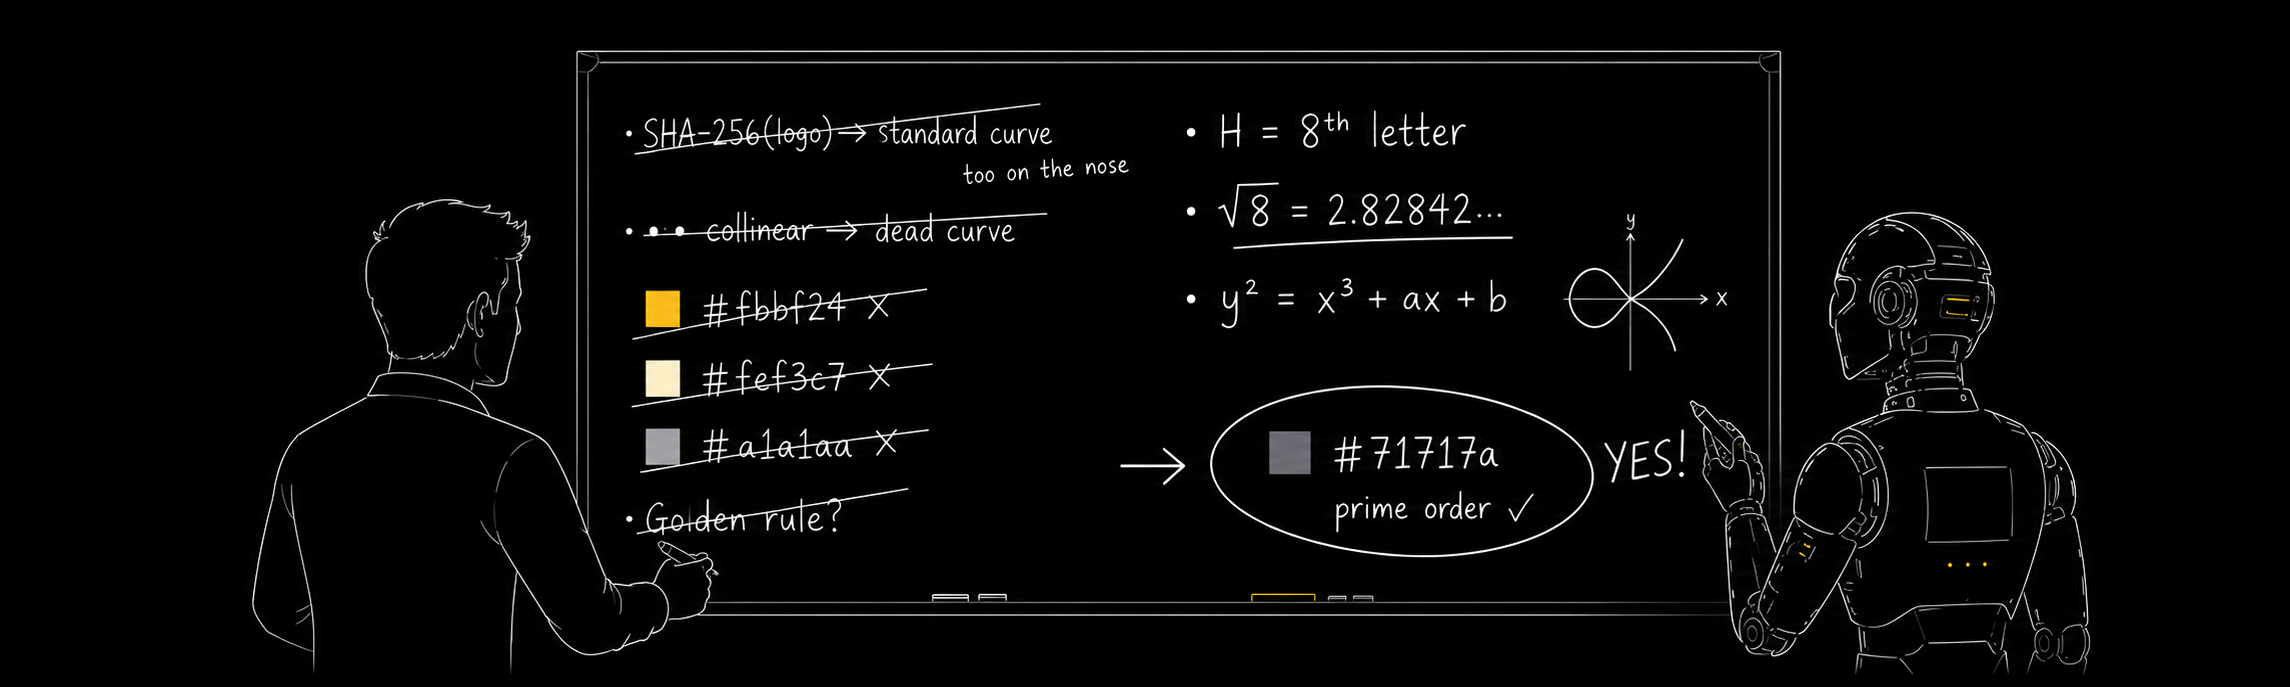 • SHA-256(logo) → standard curve
too on the nose
• • • collinear → dead curve
#fbbf24 X
#fef3c7 X
#a1a1aa X
• Golden rule?
• H = 8th letter
• √8 = 2.82842...
• y² = x³ + ax + b
y
x
→ #71717a
prime order ✓
YES!